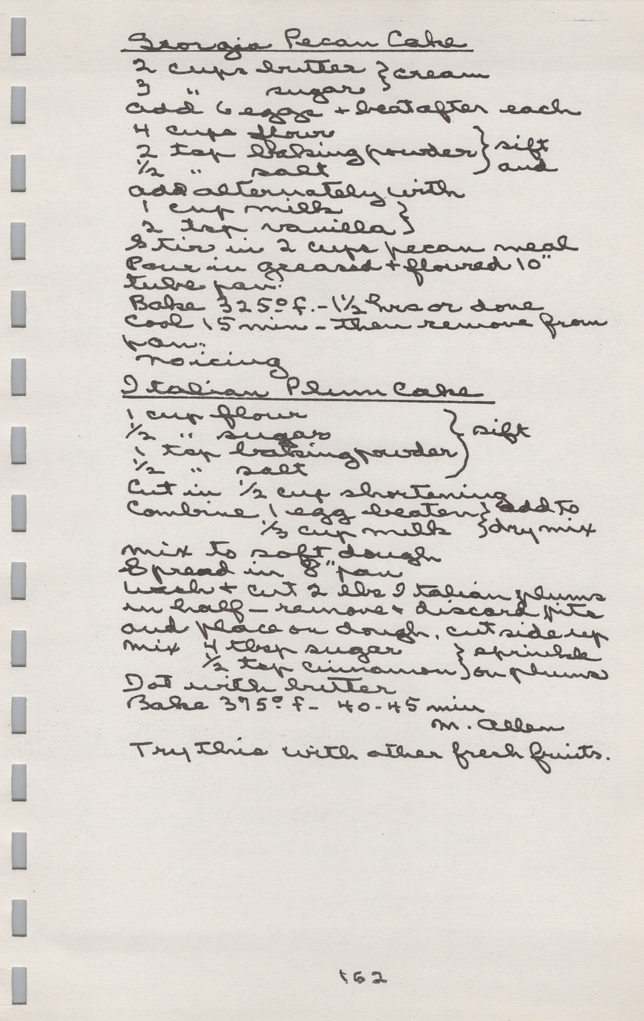 Georgia Pecan Cake
2 cups butter } cream
3 " sugar
add 6 eggs + beat after each
4 cups flour
2 tsp baking powder } sift
1/2 " salt and
add alternately with
1 cup milk }
2 tsp vanilla
Stir in 2 cups pecan meal
Pour in greased + floured 10"
tube pan.
Bake 325° f. - 1 1/2 hrs or done
Cool 15 min - then remove from
pan.
no icing
Italian Plum Cake
1 cup flour
1/2 " sugar } sift
1 tsp baking powder
1/2 " salt
Cut in 1/2 cup shortening
Combine 1 egg beaten } add to
1/3 cup milk } dry mix
mix to soft dough
Spread in 8" pan
Wash + cut 2 lbs Italian plums
in half - remove + discard pits
and place on dough, cut side up
mix 4 tbsp sugar } sprinkle
1/2 tsp cinnamon } on plums
Dot with butter
Bake 375° f - 40-45 min
M. Allen
Try this with other fresh fruits.
162